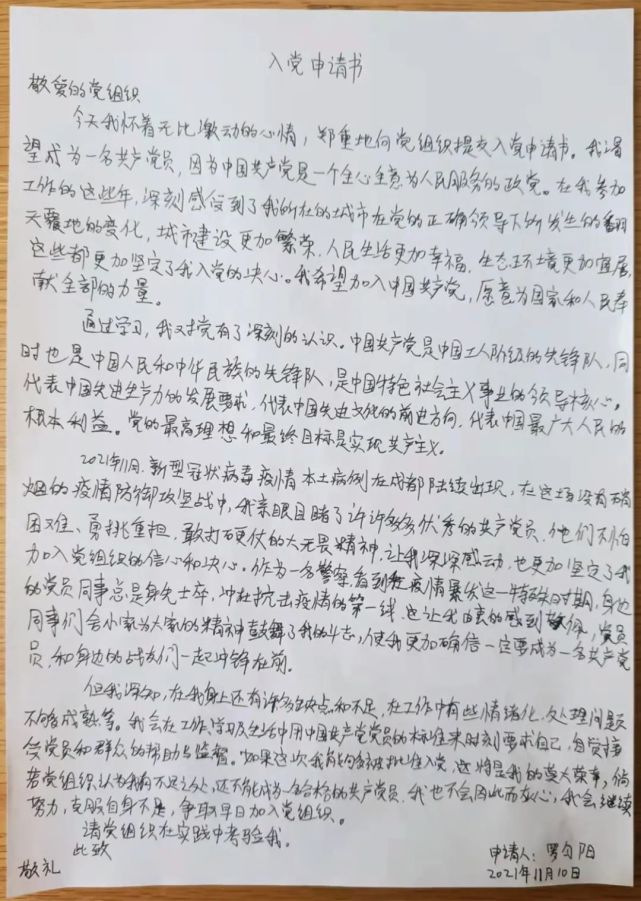 入党申请书
敬爱的党组织
今天我怀着无比激动的心情，郑重地向党组织提交入党申请书。我渴
望成为一名共产党员，因为中国共产党是一个全心全意为人民服务的政党。在我参加
工作的这些年，深刻感受到了我所在的城市在党的正确领导下所发生的翻
天覆地的变化，城市建设更加繁荣，人民生活更加幸福，生态环境更加宜居，
这些都更加坚定了我入党的决心。我希望加入中国共产党，愿意为国家和人民奉
献全部的力量。
通过学习，我对党有了深刻的认识。中国共产党是中国工人阶级的先锋队，同
时也是中国人民和中华民族的先锋队，是中国特色社会主义事业的领导核心。
代表中国先进生产力的发展要求，代表中国先进文化的前进方向，代表中国最广大人民的
根本利益。党的最高理想和最终目标是实现共产主义。
2021年11月，新型冠状病毒疫情本土病例在成都陆续出现，在这场没有硝
烟的疫情防御攻坚战中，我亲眼目睹了许许多多优秀的共产党员，他们不怕
困难、勇挑重担，敢打硬仗的大无畏精神，让我深深感动，也更加坚定了我
加入党组织的信心和决心。作为一名警察，看到在疫情暴发这一特殊时期，身边
的党员同事总是身先士卒，冲在抗击疫情的第一线，也让我由衷的感到敬佩，党员
同事们舍小家为大家的精神鼓舞了我的斗志，使我更加确信一定要成为一名共产党
员，和身边的战友们一起冲锋在前。
但我深知，在我身上还有许多缺点和不足，在工作中有些情绪化，处理问题
不够成熟等。我会在工作、学习及生活中用中国共产党党员的标准来时刻要求自己，自觉接
受党员和群众的帮助与监督。如果这次我有能够被批准入党，这将是我的莫大荣幸，倘
若党组织认为我有不足之处，还不能成为一名合格的共产党员，我也不会因此而灰心，我会继续
努力，克服自身不足，争取早日加入党组织。
请党组织在实践中考验我。
此致
敬礼
申请人：罗匀阳
2021年11月10日